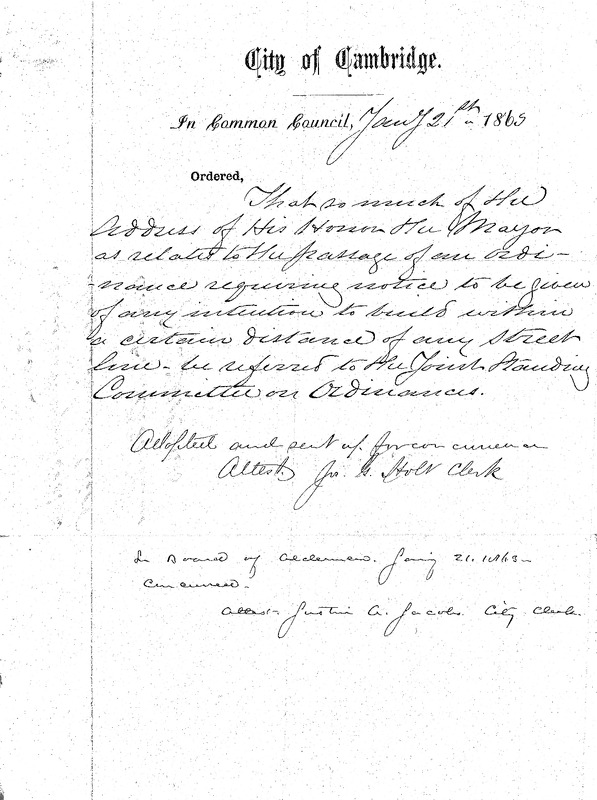 City of Cambridge.
In Common Council, Jany 21st 1863
Ordered,
That so much of the
Address of His Honor the Mayor
as relates to the passage of an ordi-
-nance requiring notice to be given
of any intention to build within
a certain distance of any street
line - be referred to the Joint Standing
Committee on Ordinances.
Adopted and sent up for concurrence
Attest. Jos. G. Holt Clerk
In Board of Aldermen. Jany 21. 1863-
Concurred.
Attest- Justin A. Jacobs. City Clerk.